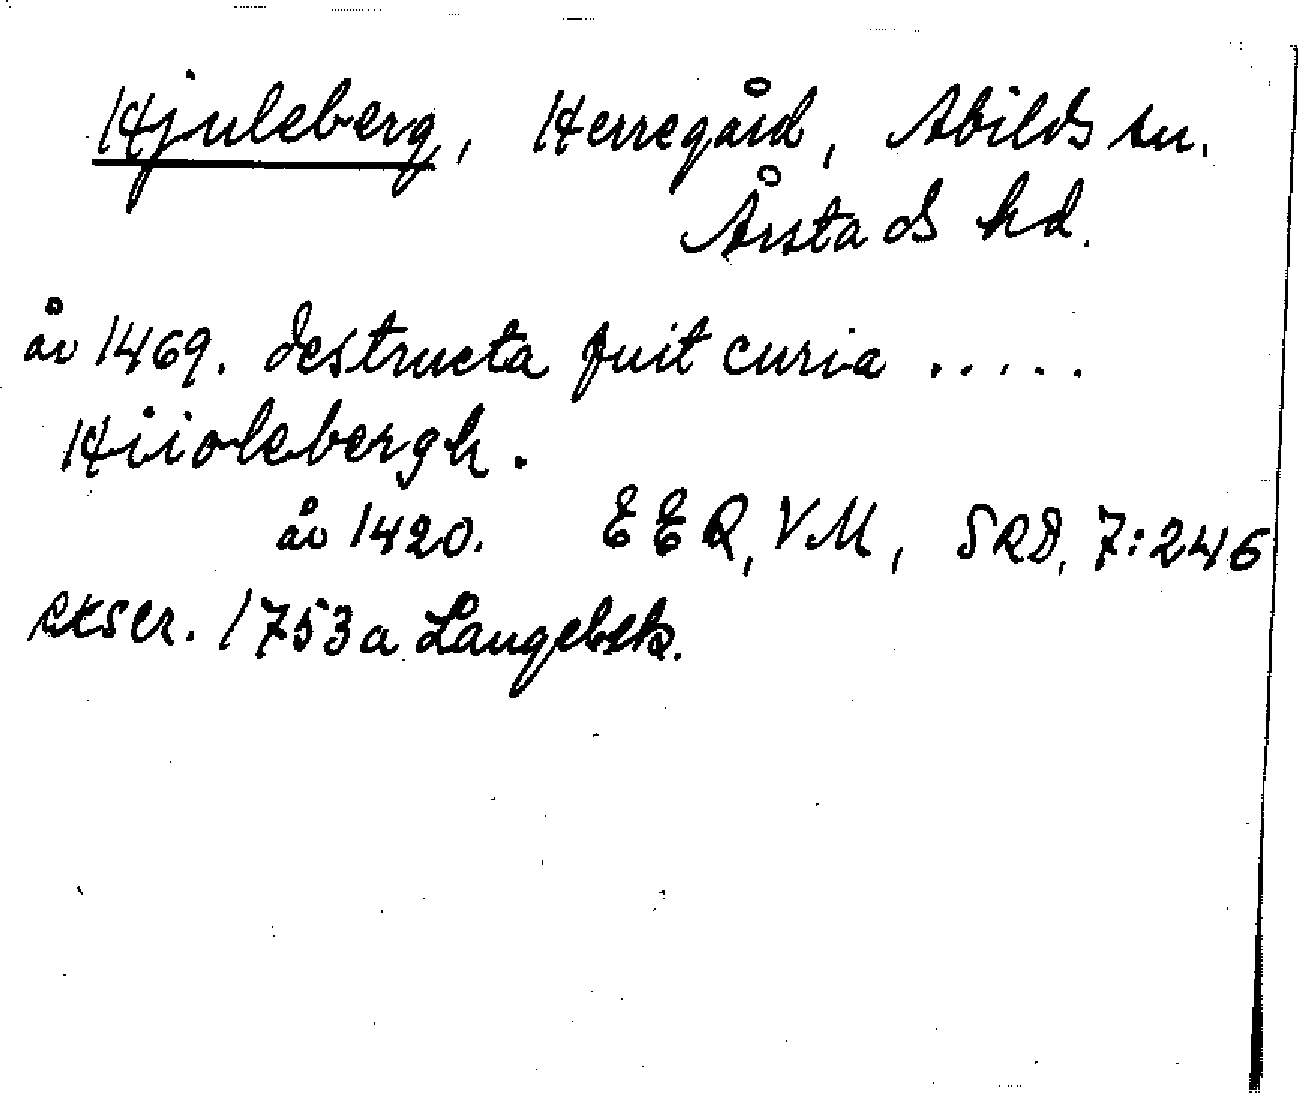 Hjuleberg, Herregård, Abilds sn.
Årstads hd.
år 1469. destructa fuit curia .....
Hiiolebergh.
år 1420. EER, VM, SRD, 7:246
exscr. 1753 a Langebek.